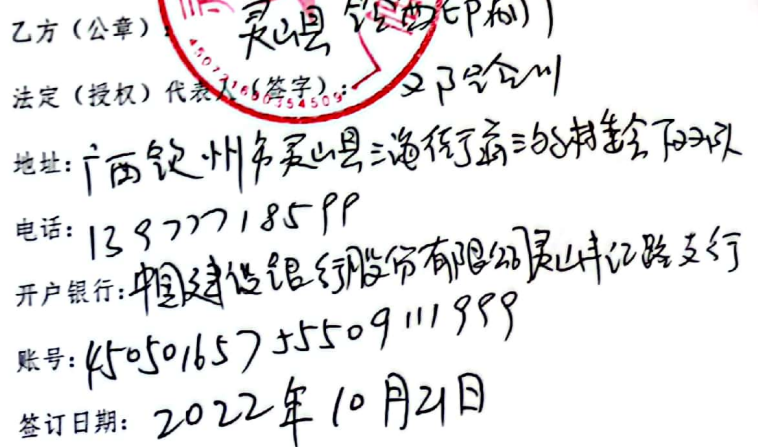 乙方（公章）： 灵山县 印刷厂
法定（授权）代表人（签字）：
450721600354509
地址：广西钦州市灵山县三海街 三 村 队
电话：13977718599
开户银行：中国建设银行股份有限公司灵山丰江路支行
账号：45050165755509111999
签订日期：2022年10月21日